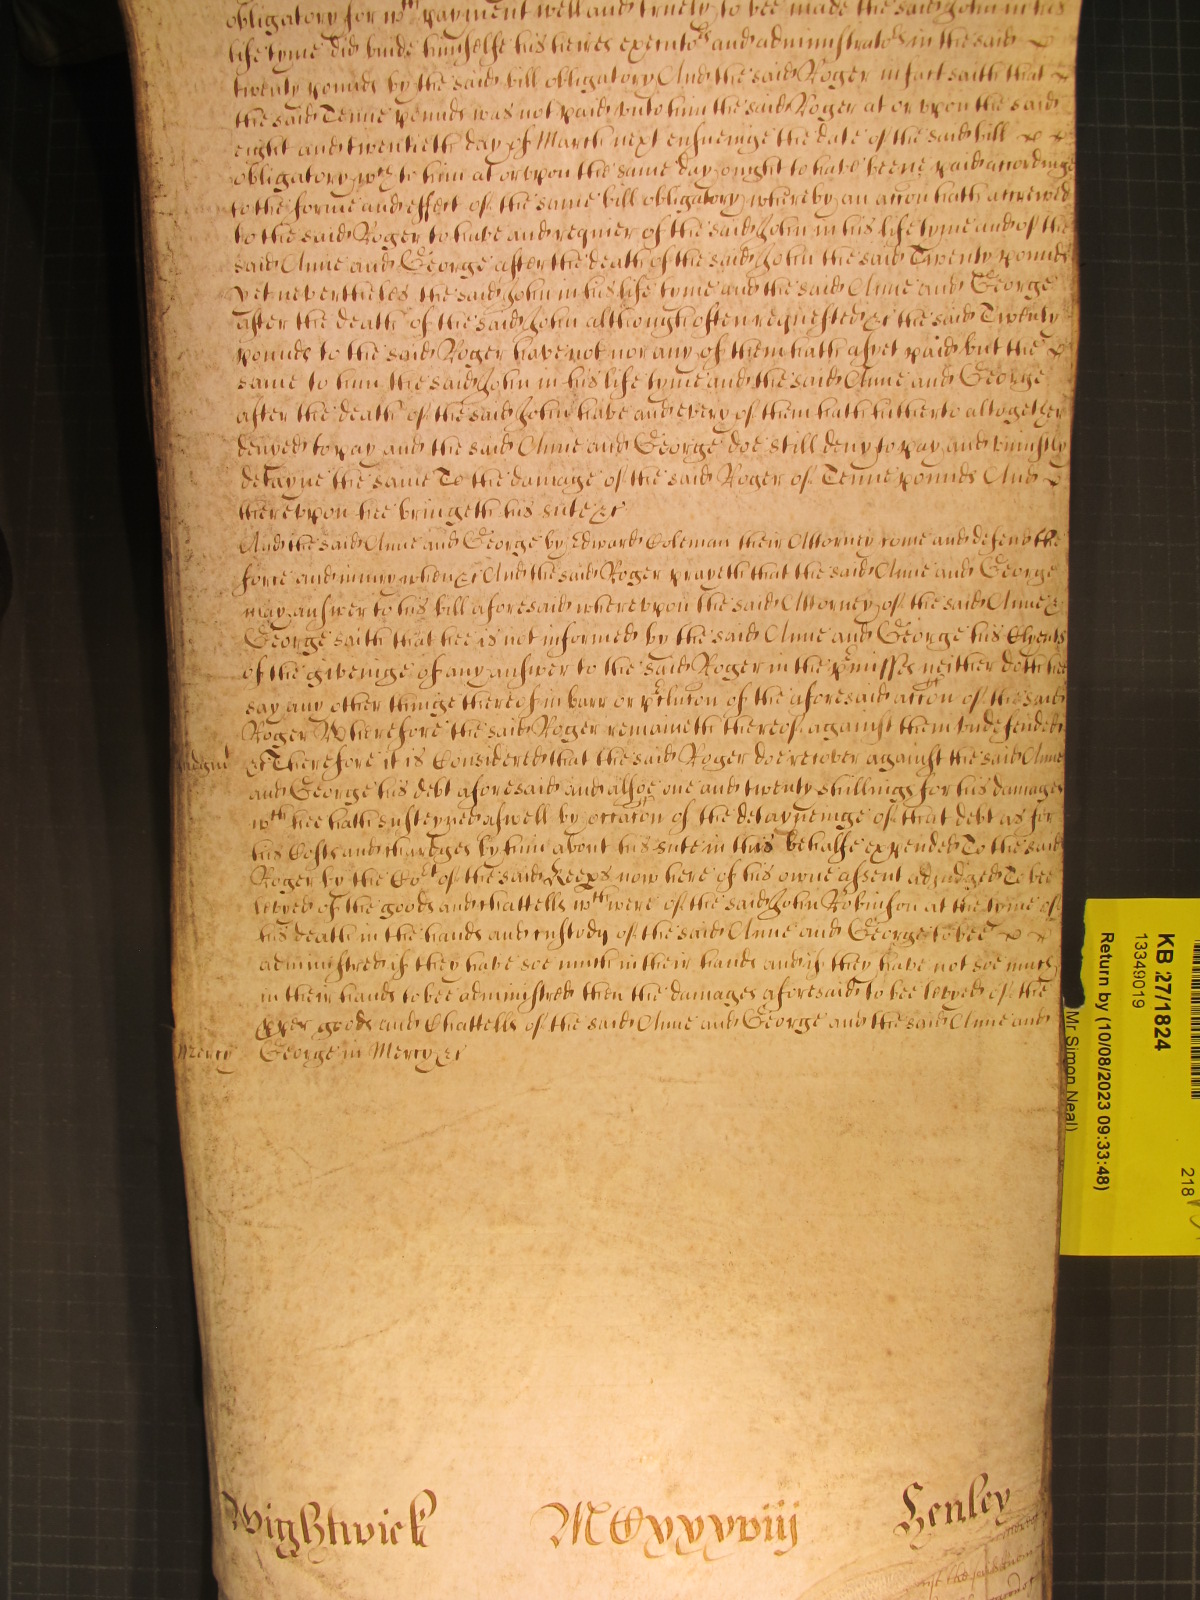 obligatory for wch payment well and truely to bee made the said John in his
life tyme did binde himselfe his heires executors and administrators in the said
twenty pounds by the said bill obligatory And the said Roger in fact saith that
the said Tenne pounds was not paid unto him the said Roger at or upon the said
eight and twentieth day of March next ensueinge the date of the said bill
obligatory wch to him at or upon the same day ought to have beene paid accordinge
to the forme and effect of the same bill obligatory whereby an accon hath accrewed
to the said Roger to have and requier of the said John in his life tyme and of the
said Anne and George after the death of the said John the said Twenty pounds
yet neverthelesse the said John in his life tyme and the said Anne and George
after the death of the said John although often requested &c the said Twenty
pounds to the said Roger have not nor any of them hath as yet paid but the
same to him the said John in his life tyme and the said Anne and George
after the death of the said John have and every of them hath hitherto altogether
denyed to pay and the said Anne and George doe still deny to pay and uniustly
detayne the same To the damage of the said Roger of Tenne pounds And
thereupon hee bringeth his sute &c
And the said Anne and George by Edward Coleman their Attorney come and defend the
force and iniury when &c And the said Roger prayeth that the said Anne and George
may answer to his bill aforesaid whereupon the said Attorney of the said Anne &
George saith that hee is not informed by the said Anne and George his Clyents
of the giveinge of any answer to the said Roger in the pmisses neither doth hee
say any other thinge thereof in barr or pclusion of the aforesaid accon of the said
Roger Wherefore the said Roger remaineth thereof against them undefended
Judgmt &c Therefore it is Considered that the said Roger doe recover against the said Anne
and George his debt aforesaid and alsoe one and twenty shillings for his damages
wch hee hath susteyned aswell by occacon of the detayneinge of that debt as for
his Costs and chardges by him about his sute in this behalfe expended To the said
Roger by the Cort of the said Keeps now here of his owne assent adjudged To bee
levyed of the goods and chattells wch were of the said John Robinson at the tyme of
his death in the hands and custody of the said Anne and George to bee
administred if they have soe much in their hands and if they have not soe much
in their hands to bee administred then the damages aforesaid to bee levyed of the
pper goods and Chattells of the said Anne and George and the said Anne and
Mercy George in Mercy &c
Wightwick MCxxxviij Henley
KB 27/1824
13349019
Return by (10/08/2023 09:33:48)
(Mr Simon Neal)
218